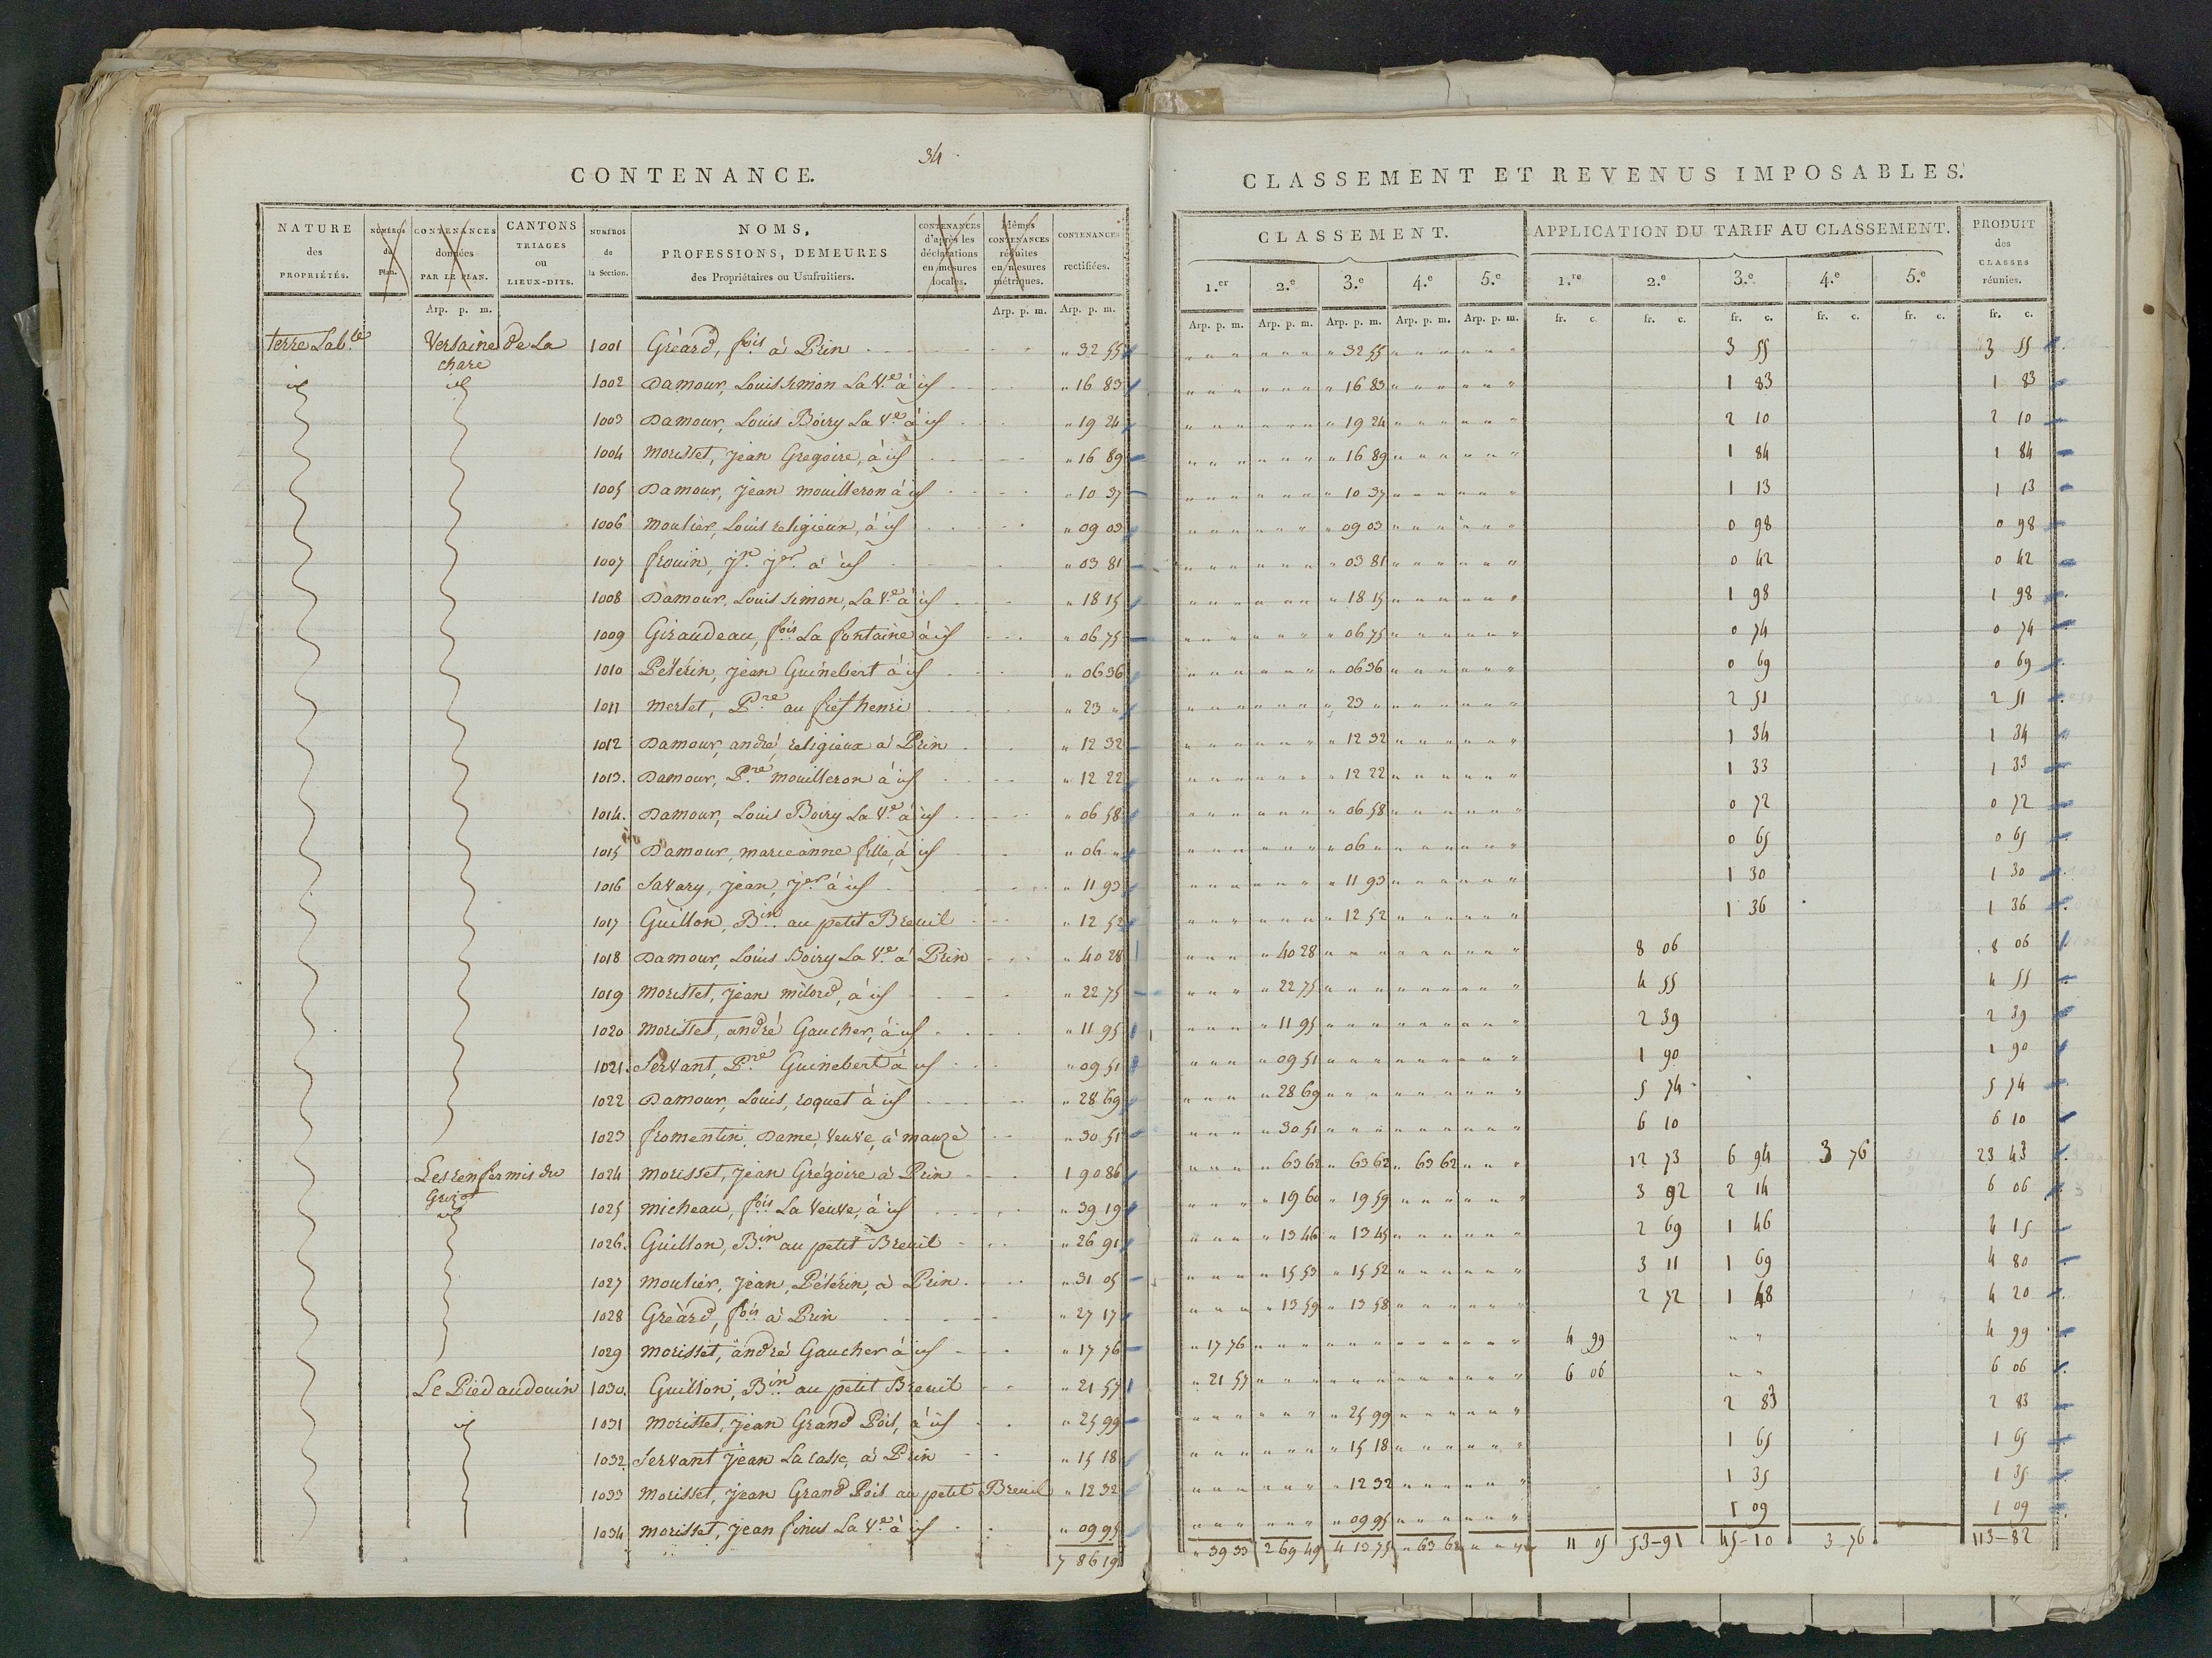 34.
CONTENANCE.
NATURE des PROPRIÉTÉS.
NUMÉROS du Plan.
CONTENANCES données PAR LE PLAN.
CANTONS TRIAGES ou LIEUX-DITS.
NUMÉROS de la Section.
NOMS, PROFESSIONS, DEMEURES des Propriétaires ou Usufruitiers.
CONTENANCES d'après les déclarations en mesures locales.
Mêmes CONTENANCES réduites en mesures métriques.
CONTENANCES rectifiées.
Arp. p. m. Arp. p. m. Arp. p. m.
terre Lab.le Versaine de La chare 1001 Gréard, fois à Prin " 32 55
id id 1002 Damour, Louis simon La Ve à id " 16 83
1003 Damour, Louis Boiry La Ve à id " 19 24
1004 Morisset, Jean Gregoire, à id " 16 89
1005 Damour, Jean mouilleron à id " 10 37
1006 Moulier, Louis religieux, à id " 09 03
1007 frouin, Jn Jer à id " 03 81
1008 Damour, Louis simon, La Ve à id " 18 15
1009 Giraudeau, fois La fontaine à id " 06 75
1010 Pélérin, Jean Guinebert à id " 06 36
1011 merlet, Pre au fief henri " 23 "
1012 Damour, andré religieux à Prin " 12 32
1013. Damour, Pre mouilleron à id " 12 22
1014. Damour, Louis Boiry La Ve à id " 06 58
1015 Damour, marie anne fille, à id " 06 "
1016 Savary, Jean, Jer à id " 11 93
1017 Guillon, Bin au petit Breuil " 12 52
1018 Damour, Louis Boiry La Ve à Prin " 40 28
1019 Morisset, Jean milord, à id " 22 75
1020 Morisset, andré Gaucher, à id " 11 95
1021. Servant, Pre Guinebert à id " 09 51
1022 Damour, Louis, roquet à id " 28 69
1023 fromentin, Dame, veuve, à mauzé " 30 51
Les renfermis du Grizot 1024 Morisset, Jean Grégoire à Prin 1 90 86
id 1025 Micheau, fois La veuve, à id " 39 19
1026. Guillon, Bin au petit Breuil " 26 91
1027 Moulier, Jean, Pélérin, à Prin " 31 05
1028 Gréard, fois à Prin " 27 17
1029 Morisset, andré Gaucher à id " 17 76
Le Pied audouin 1030. Guillon, Bin au petit Breuil " 21 57
id 1031 Morisset, Jean Grand Pois, à id " 25 99
1032 Servant Jean La casse, à Prin " 15 18
1033 Morisset, Jean Grand Pois au petit Breuil " 12 32
1034 Morisset, Jean finus La Ve à id " 09 95
7 86 19
CLASSEMENT ET REVENUS IMPOSABLES.
CLASSEMENT.
APPLICATION DU TARIF AU CLASSEMENT.
PRODUIT des CLASSES réunies.
1.er 2.e 3.e 4.e 5.e 1.re 2.e 3.e 4.e 5.e
Arp. p. m. Arp. p. m. Arp. p. m. Arp. p. m. Arp. p. m. fr. c. fr. c. fr. c. fr. c. fr. c. fr. c.
" 32 55 3 55 3 55
" 16 83 1 83 1 83
" 19 24 2 10 2 10
" 16 89 1 84 1 84
" 10 37 1 13 1 13
" 09 03 0 98 0 98
" 03 81 0 42 0 42
" 18 15 1 98 1 98
" 06 75 0 74 0 74
" 06 36 0 69 0 69
" 23 " 2 51 2 51
" 12 32 1 34 1 34
" 12 22 1 33 1 33
" 06 58 0 72 0 72
" 06 " 0 65 0 65
" 11 93 1 30 1 30
" 12 52 1 36 1 36
" 40 28 8 06 8 06
" 22 75 4 55 4 55
" 11 95 2 39 2 39
" 09 51 1 90 1 90
" 28 69 5 74 5 74
" 30 51 6 10 6 10
" 63 62 " 63 62 " 63 62 12 73 6 94 3 76 23 43
" 19 60 " 19 59 3 92 2 14 6 06
" 13 46 " 13 45 2 69 1 46 4 15
" 15 53 " 15 52 3 11 1 69 4 80
" 13 59 " 13 58 2 72 1 48 4 20
" 17 76 4 99 " " 4 99
" 21 57 6 06 " " 6 06
" 25 99 2 83 2 83
" 15 18 1 65 1 65
" 12 32 1 35 1 35
" 09 95 1 09 1 09
" 39 33 2 69 49 4 13 75 " 63 62 " " " 11 05 53-91 45-10 3-76 113-82